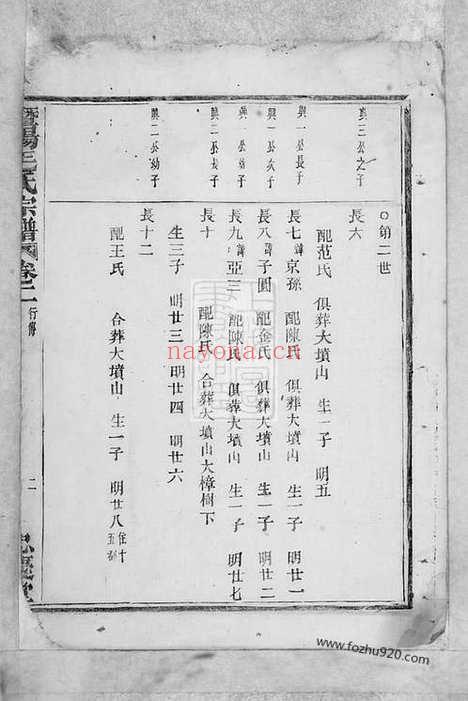 ○第二世
興三公之子
長六
配范氏 俱葬大墳山 生一子 明五
興一公長子
長七 諱京孫 配陳氏 俱葬大墳山 生一子 明廿一
興一公次子
長八 諱子圓 配金氏 俱葬大墳山 生一子 明廿二
興一公幼子
長九 諱亞三 配陳氏 俱葬大墳山 生一子 明廿七
興二公長子
長十 配陳氏 合葬大墳山大樟樹下
生三子 明廿三 明廿四 明廿六
興二公幼子
長十二
配王氏 合葬大墳山 生一子 明廿八 住十五都
暨陽王氏宗譜 卷之二 行傳
二
nayona.cn
www.fozhu920.com